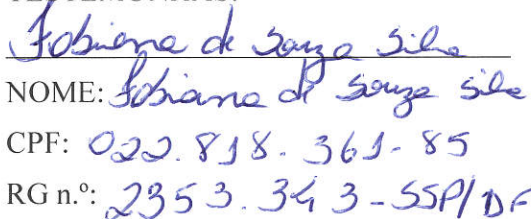 TESTEMUNHAS:
Fabiana de Souza Silva
NOME: Fabiana de Souza Silva
CPF: 022.818.361-85
RG n.º: 2353.343-SSP/DF